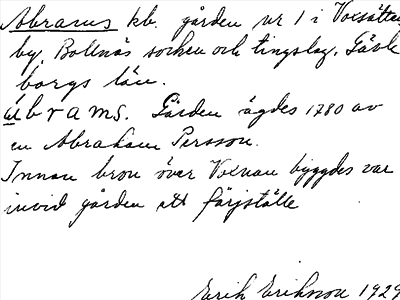 Abrams kb. gården nr 1 i Voxsätter
by, Bollnäs socken och tingslag, Gävle
borgs län.
àbrams. Gården ägdes 1780 av
en Abraham Persson.
Innan bron över Voxnan byggdes var
invid gården ett färjställe
Erik Erikson 1929